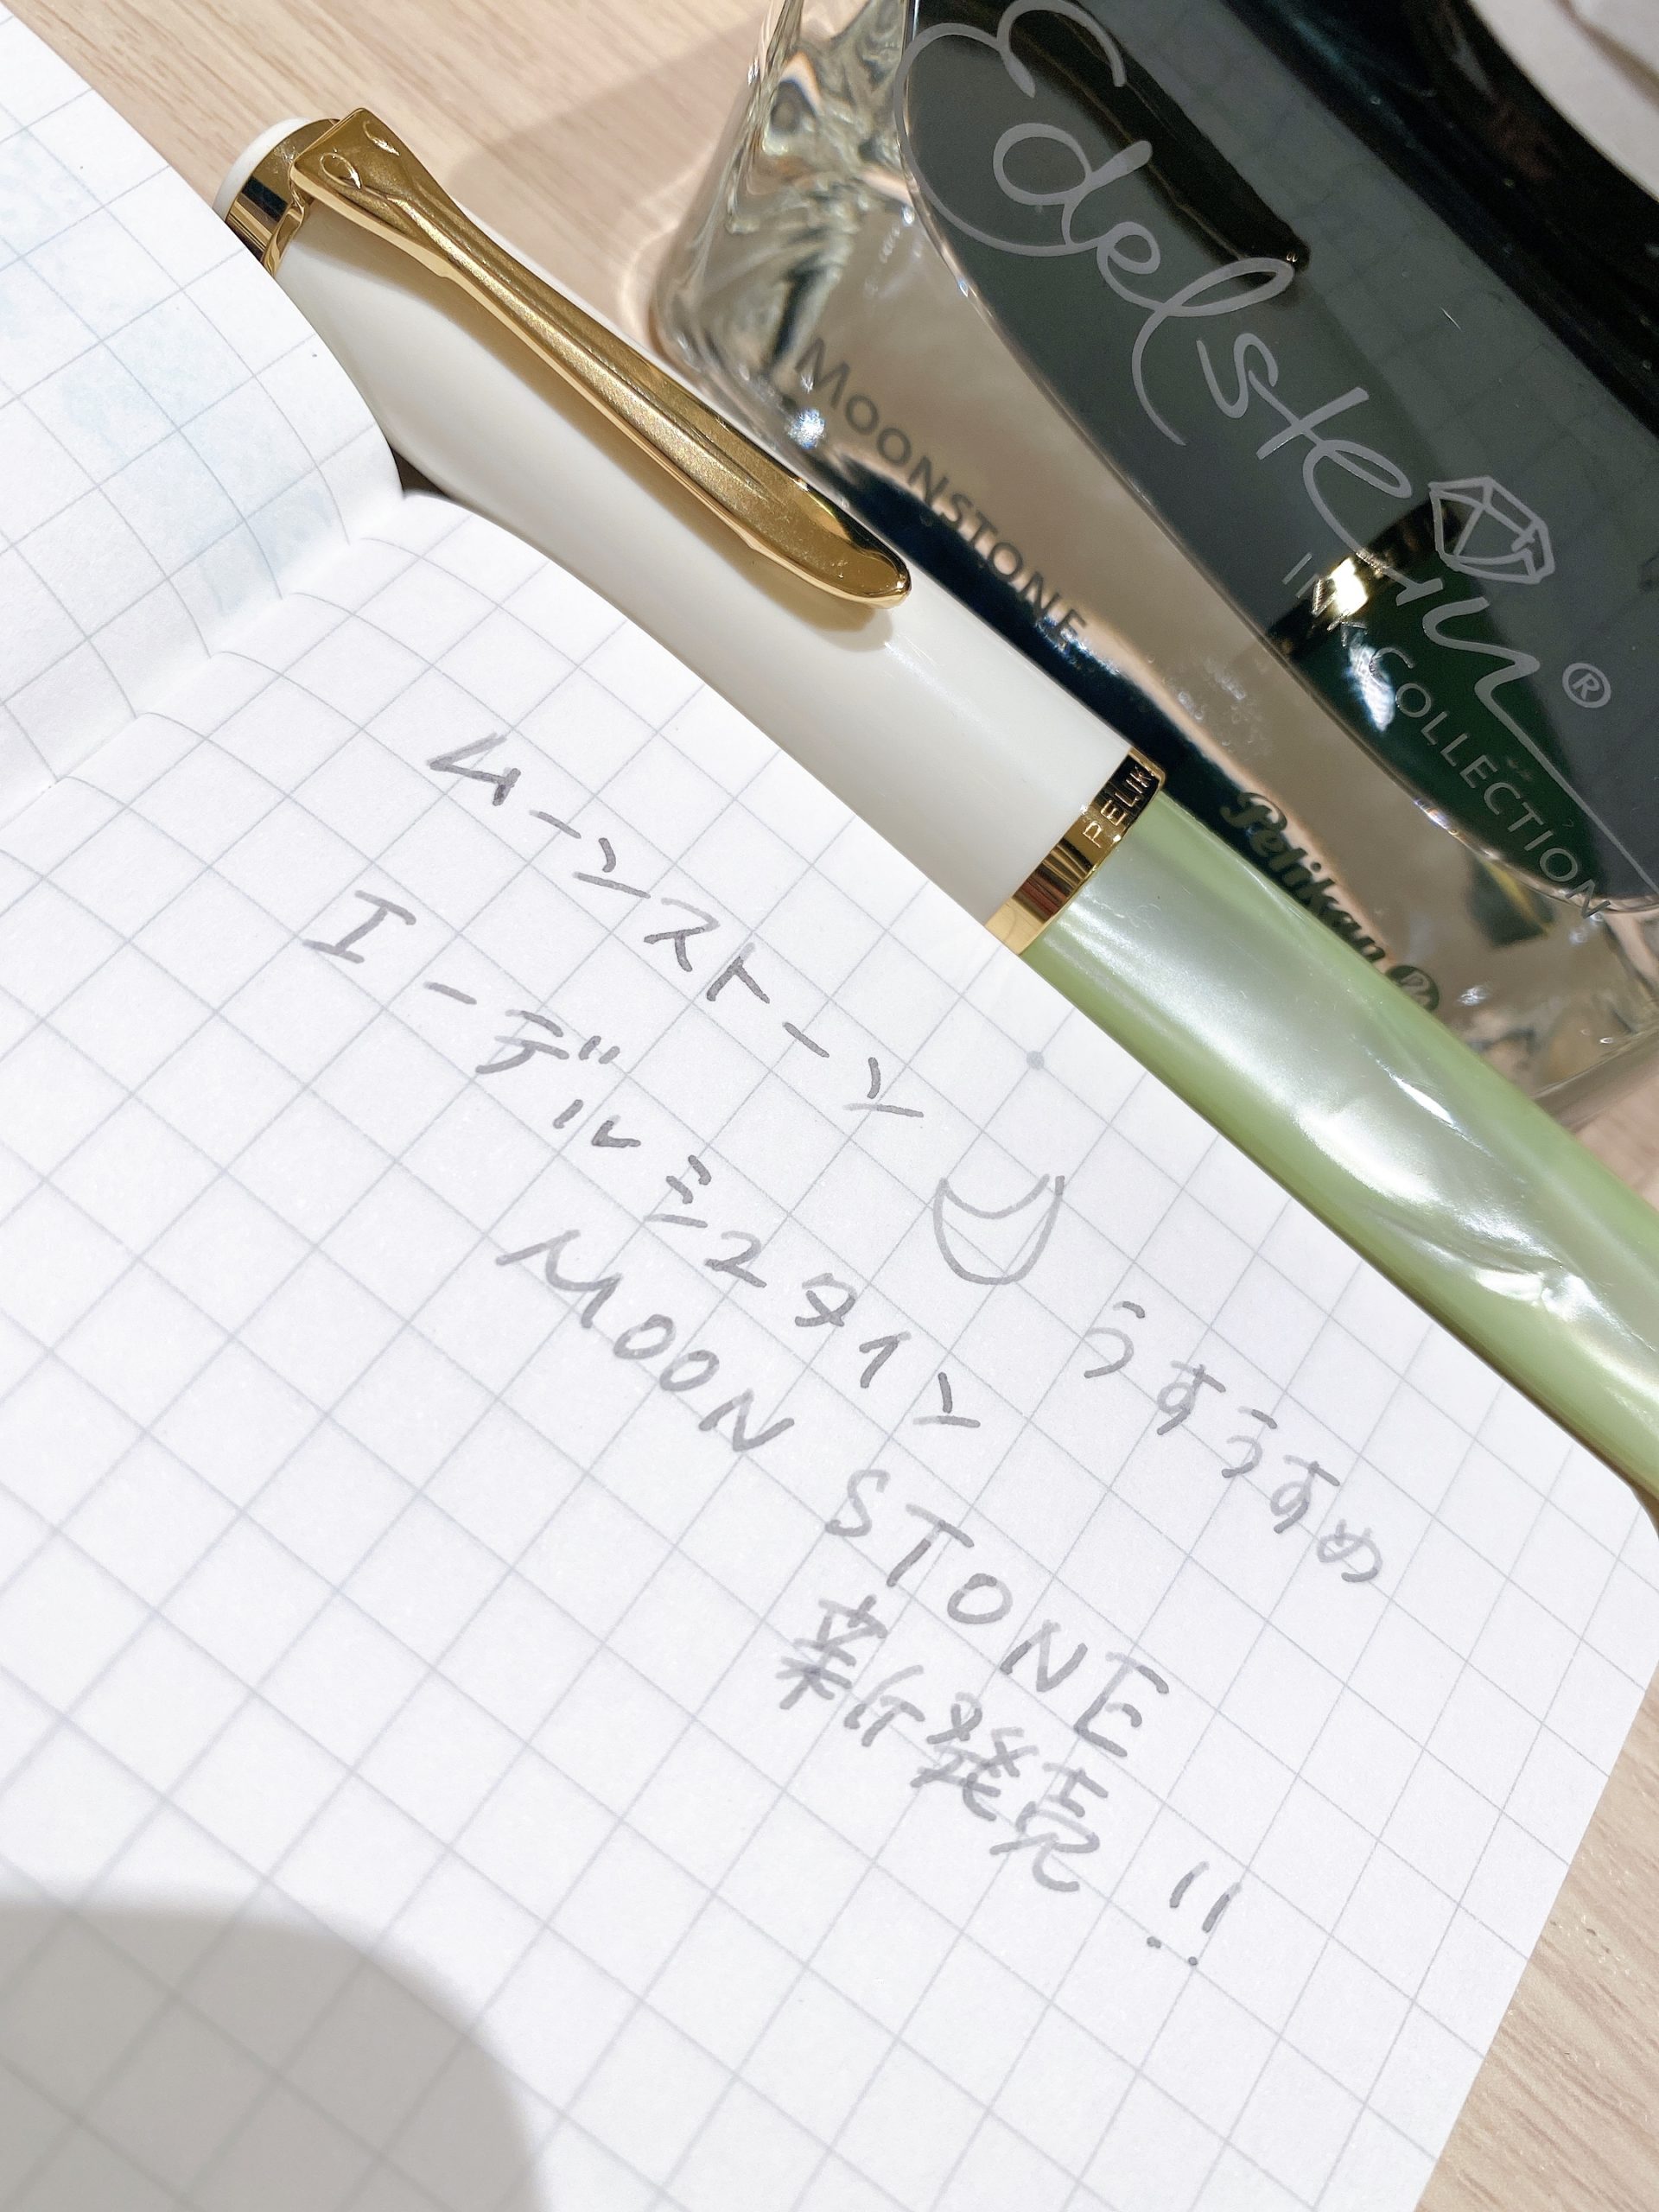 Edelstein®
INK COLLECTION
MOONSTONE
Pelikan
PELIK
ムーンストーン
うすうすめ
エーデルシュタイン
MOON STONE
新発売!!